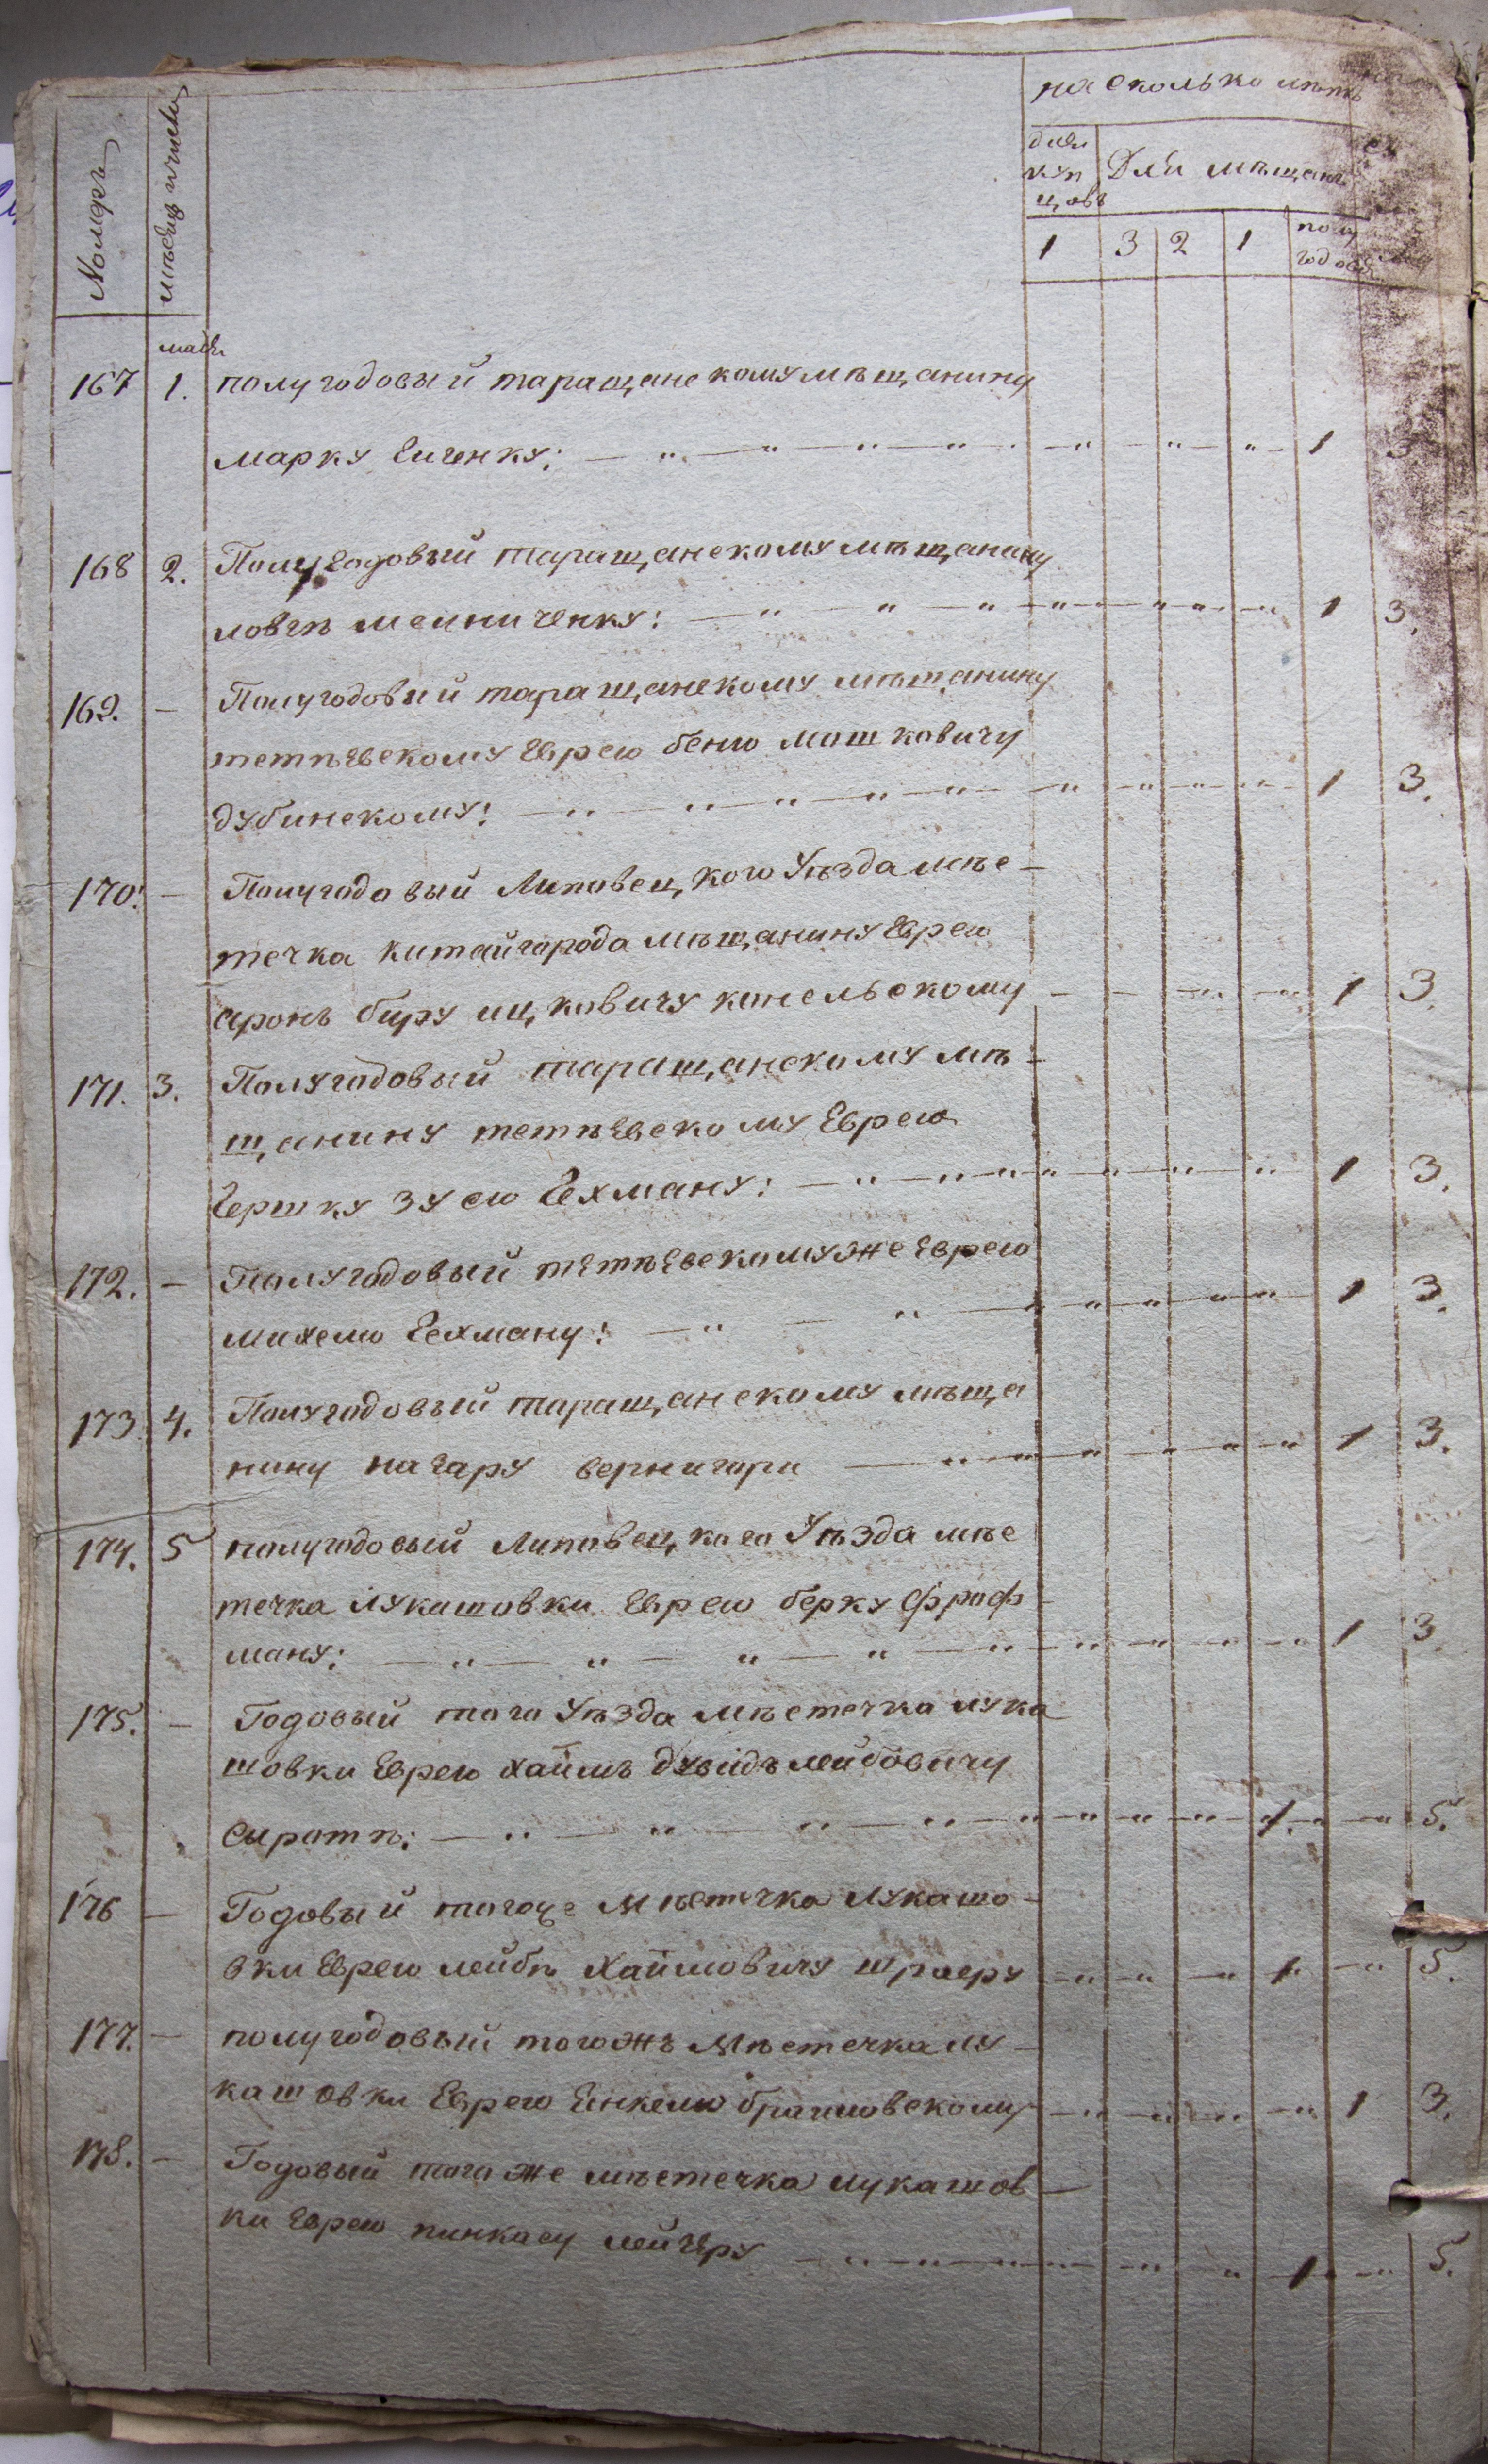 Номеръ
мѣсяцъ и число
на сколько лѣтъ
для купцовъ
Для мѣщанъ
1 3 2 1 полугодов
мая
167 1. полугодовый таращанскому мѣщанину
марку Гиценку: 1 3
168 2. Полугодовый таращанскому мѣщанину
мѣлниченку: 1 3.
169. — Полугодовый таращанскому мѣщанину
тетѣевскому Еврею беню мошковичу
дубинскому: 1 3.
170. — Полугодовый Липовецкого Уѣзда мѣс-
течка китайгорода мѣщанину Еврею
аронъ беру ицковичу конельскому 1 3.
171. 3. Полугодовый таращанскому мѣ-
щанину тетѣевскому Еврею
Гершку Зусю Гехману: 1 3.
172. — Полугодовый тетѣевскому же Еврею
михелю Гехману: 1 3.
173. 4. Полугодовый таращанскому мѣща
нину назару вернигори 1 3.
174. 5 полугодовый Липовецкого Уѣзда мѣс
течка лукашовки Еврею берку Фроф-
ману: 1 3.
175. — Годовый того Уѣзда мѣстечка лука
шовки Еврею хаимъ дувидъ лейбовичу
сиротѣ: 1. 5.
176 — Годовый тогоже мѣстечка лукашо-
вки Еврею лейбѣ хаимовичу шраеру 1 5.
177. — полугодовый тогожъ мѣстечка лу-
кашовки Еврею Енкелю браиловскому 1 3.
178. — Годовый того же мѣстечка лукашов-
ки Еврею пинкасу лейгеру 1 5.